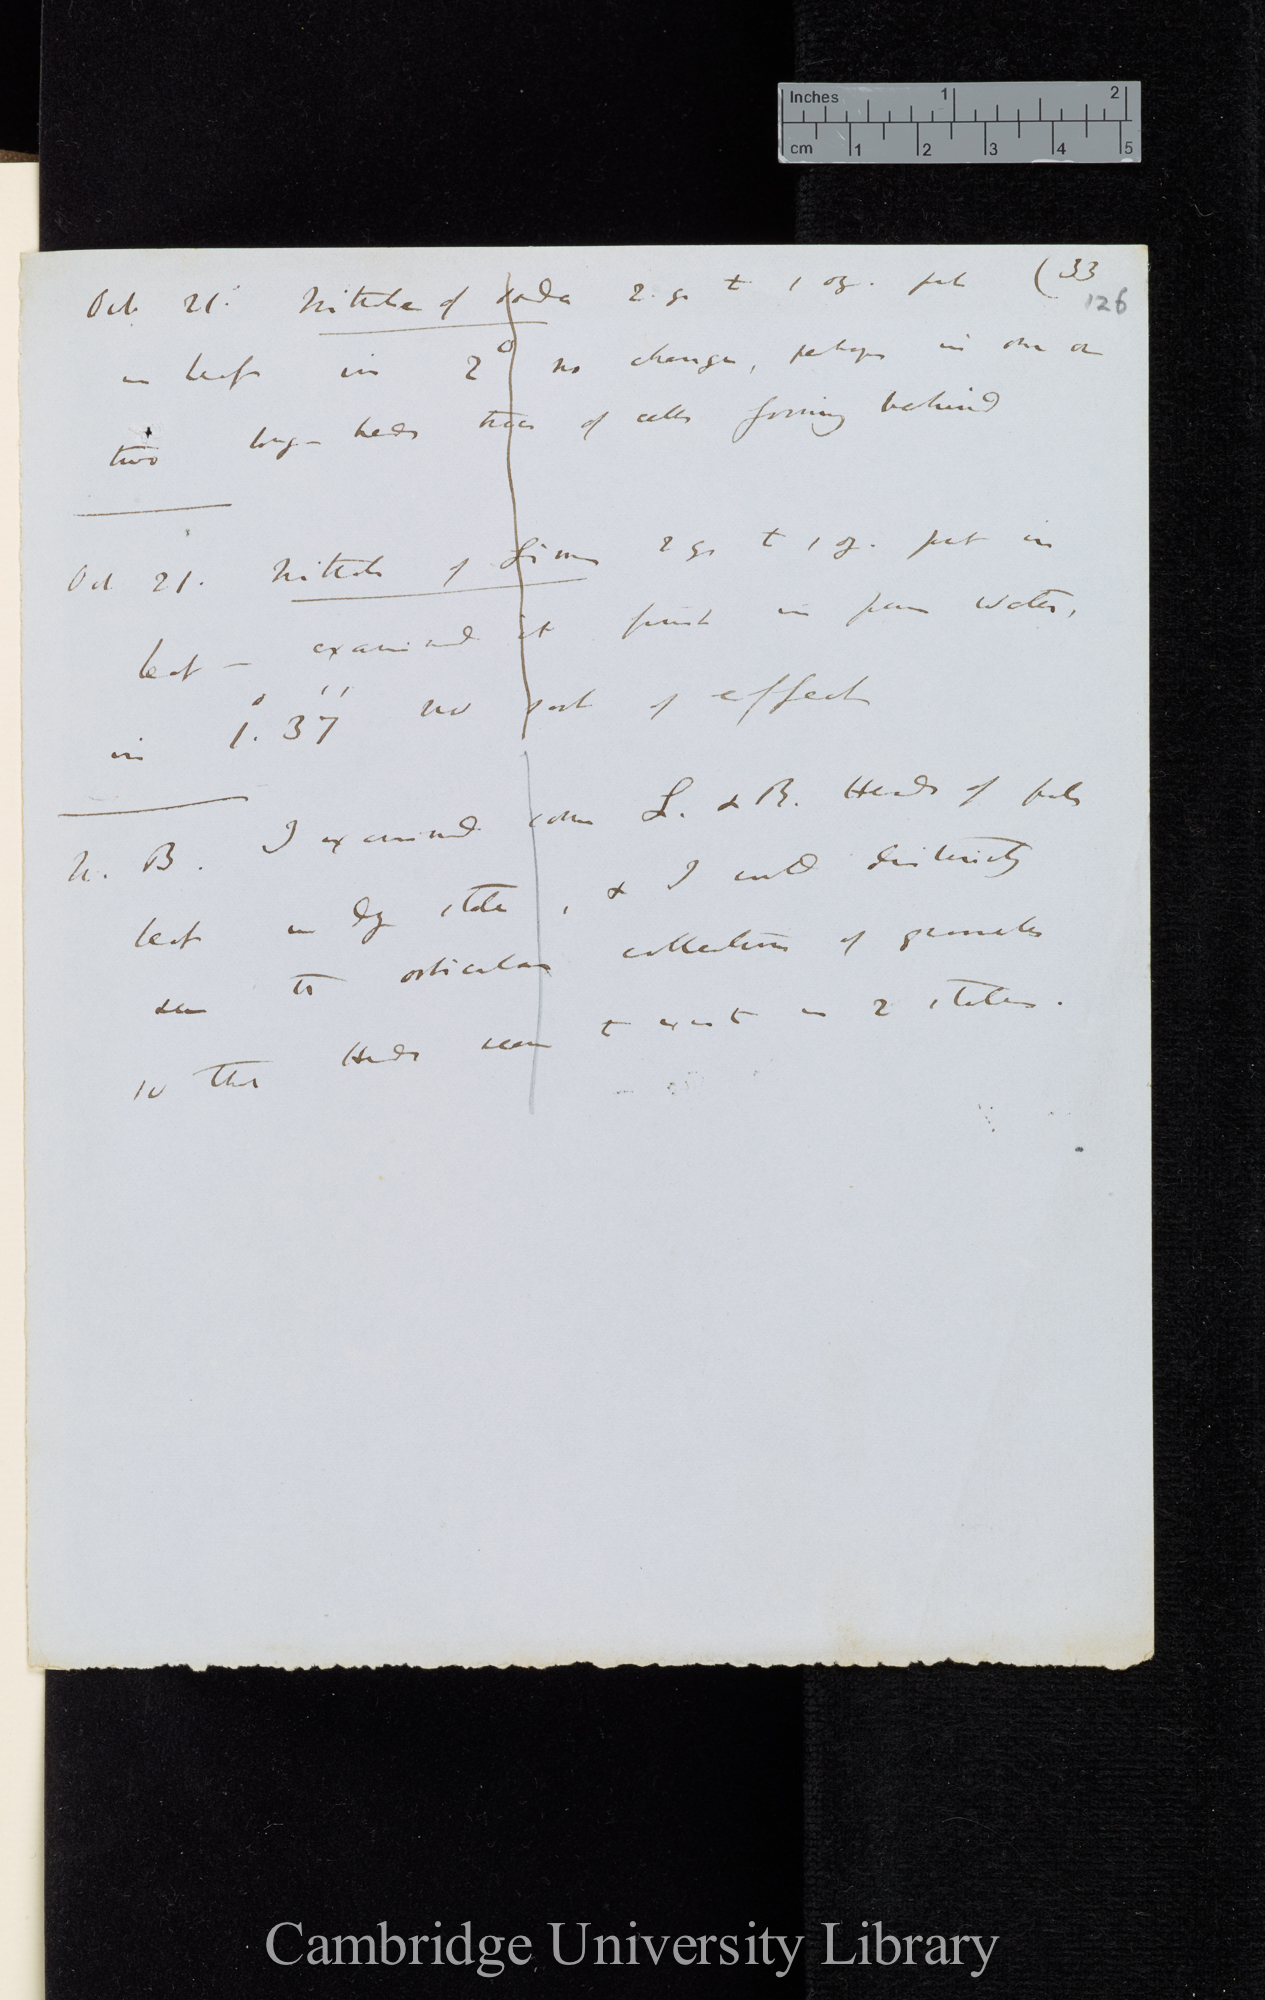 Inches 1 2
cm 1 2 3 4 5
(33
126
Oct. 21. Nitrate of soda 2. gr to 1 oz. put
on leaf in 2° no change, perhaps in one or
two large heads trace of cells forming behind
Oct 21. Nitrate of Lime 2 gr to 1 oz. put in
leaf — examined it first in pure water,
in 1.° 37'' no sort of effect
N. B. I examined some L. & B. Heads of pale
leaf in dry state, & I could distinctly
see the orticular collections of granules
so that Heads seem to exist in 2 states.
Cambridge University Library